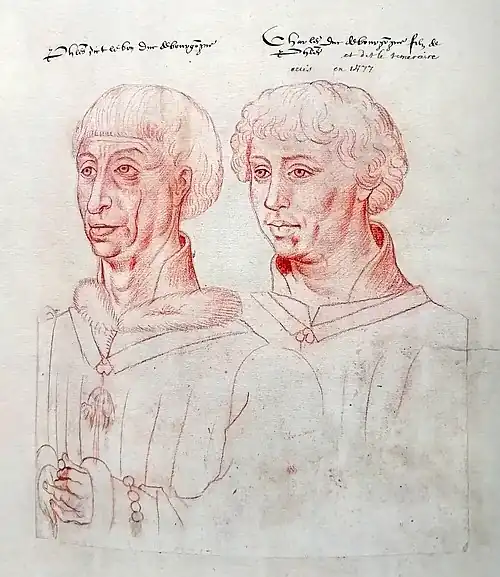 Phles dit le bon duc de bourgongne
Charles duc de bourgongne filz de
Phles et dit le temeraire
occis en 1477